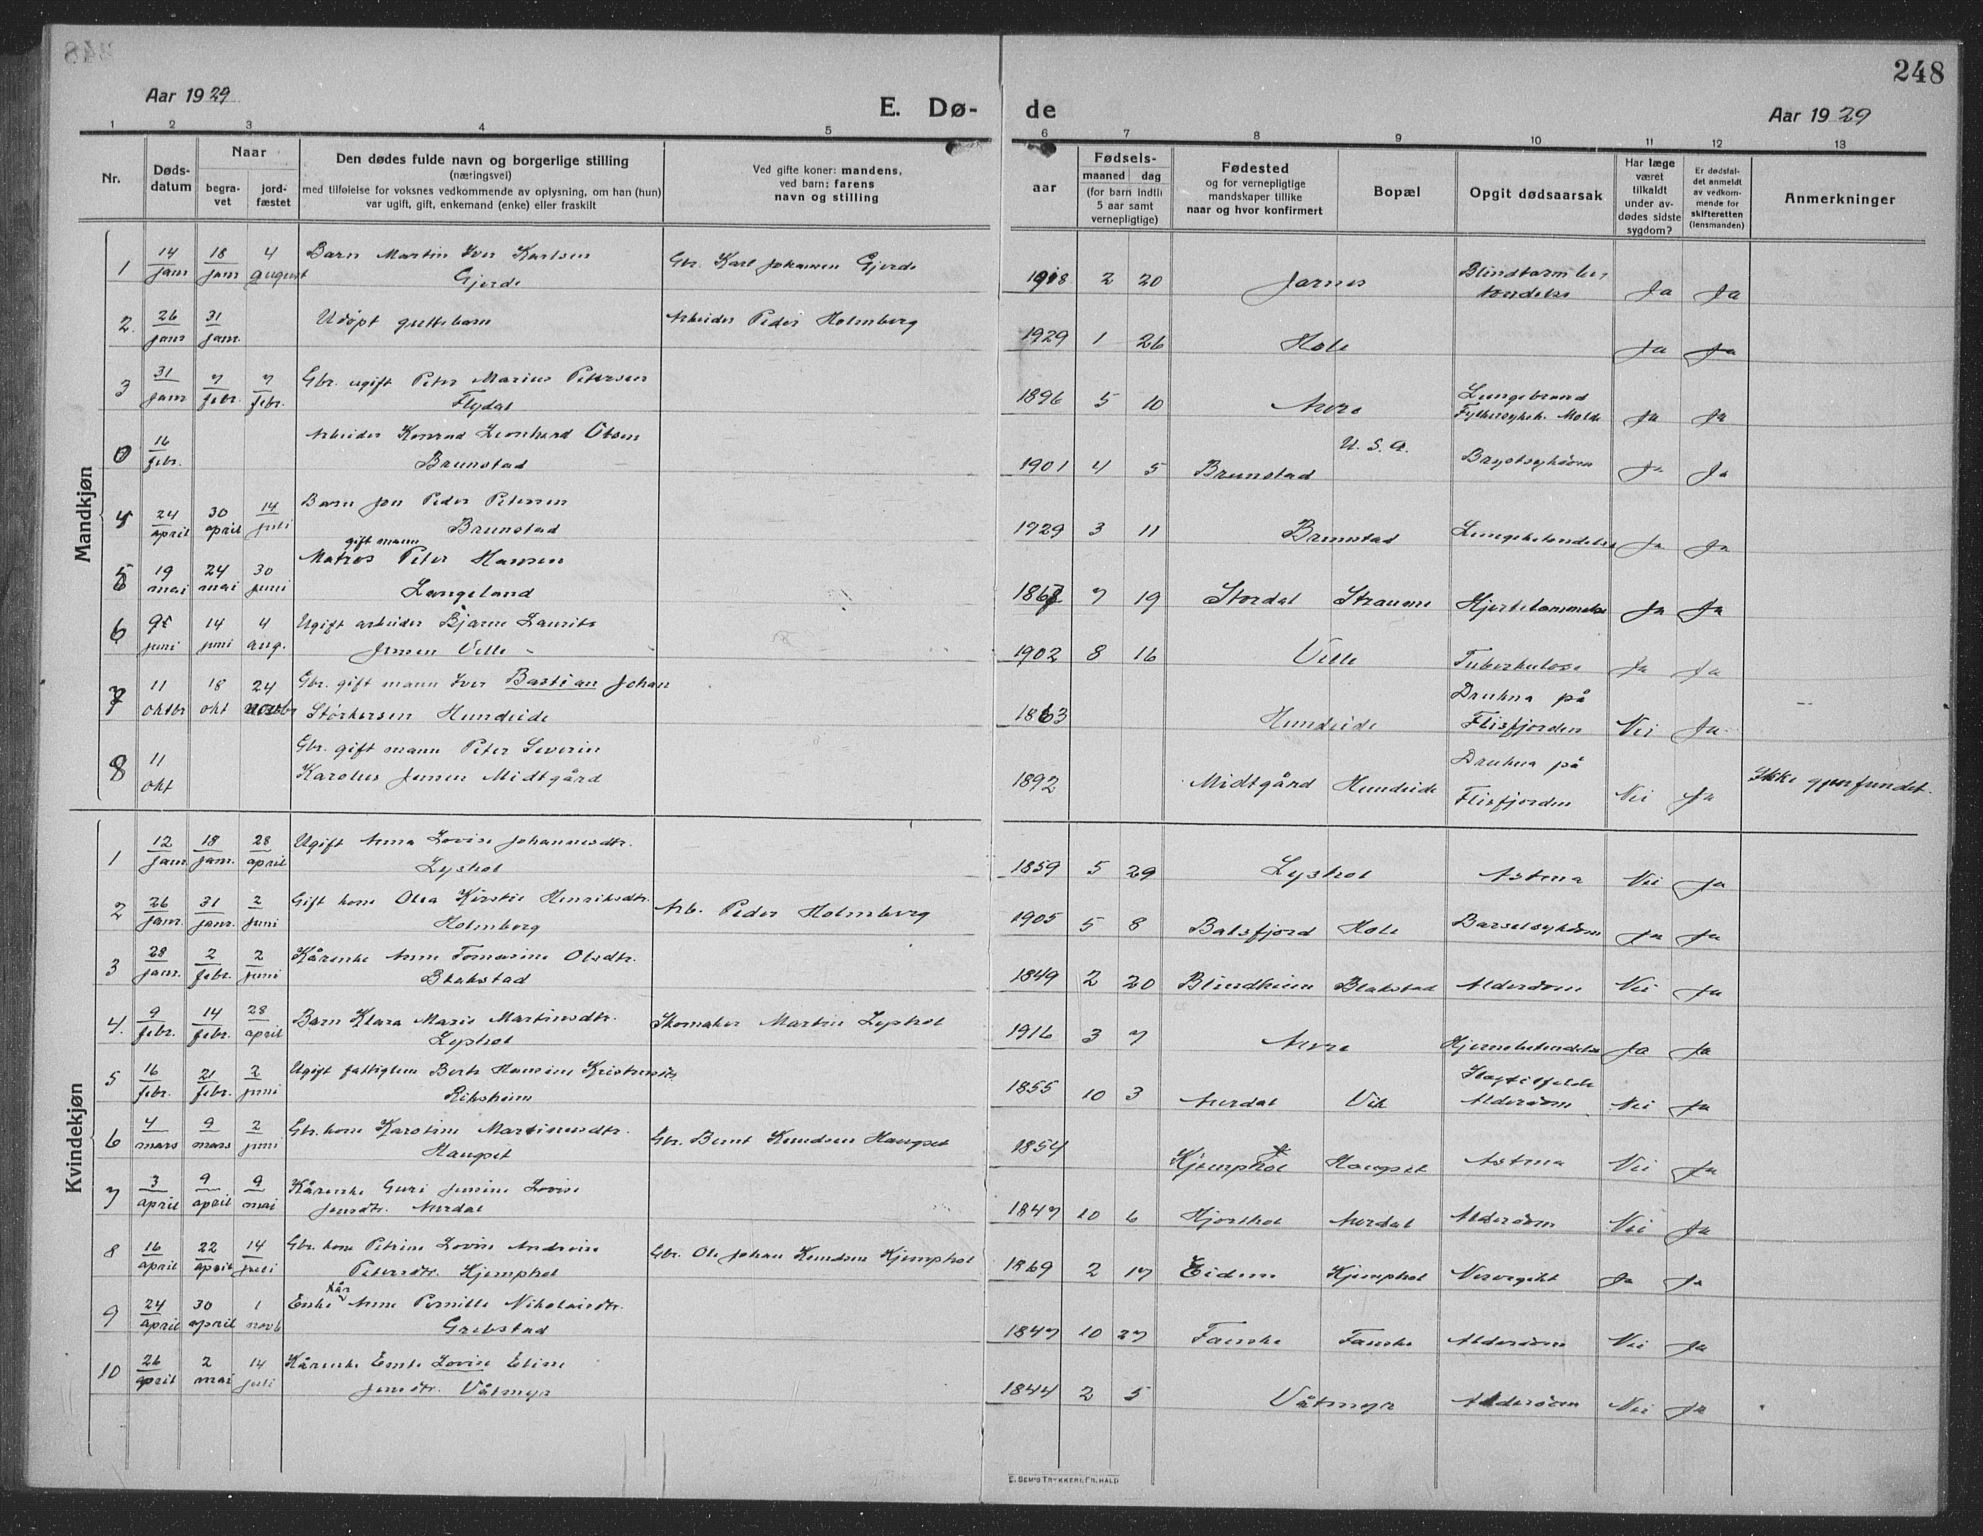 248
Aar 1929
E. Dø-
de
Aar 1929
1 2 3 4 5 6 7 8 9 10 11 12 13
Nr.
Døds-
datum
Naar
begra-
vet
jord-
fæstet
Den dødes fulde navn og borgerlige stilling
(næringsvei)
med tilføielse for voksnes vedkommende av oplysning, om han (hun)
var ugift, gift, enkemand (enke) eller fraskilt
Ved gifte koner: mandens,
ved barn: farens
navn og stilling
Fødsels-
aar
maaned dag
(for barn indtil
5 aar samt
vernepligtige)
Fødested
og for vernepligtige
mandskaper tillike
naar og hvor konfirmert
Bopæl
Opgit dødsaarsak
Har læge
været
tilkaldt
under av-
dødes sidste
sygdom?
Er dødsfal-
det anmeldt
av vedkom-
mende for
skifteretten
(lensmanden)
Anmerkninger
Mandkjøn
1 14/jan 18/jan 4 august Barn Martin Iver Karlsen Gbr. Karl Johansen Gjerde 1918 2 20 Jarnes Blindtarmbe-
Gjerde tendelse Ja Ja
2. 26/jan 31/jan. Udøpt guttebarn Arbeider Peder Holmberg 1929 1 26 Hole Ja Ja
3 31/jan 7/febr. 7/febr. Gbr. ugift Peter Marius Petersen 1896 5 10 Aure Lungebrand
Flydal Fylkessykeh. Molde Ja Ja
0 16/febr. Arbeider Konrad Leonhard Olsen U.S.A.
Brunstad 1901 4 5 Brunstad Brystsykdom Ja Ja
4 24/april 30 april 14/juli Barn Jon Peder Petersen
Brunstad 1929 3 11 Brunstad Lungebetendelse Ja Ja
gift mann
5 19 mai 24 mai 30 juni Matros Peter Hansen
Langeland 1867 7 19 Stordal Straume Hjertelammelse Ja Ja
6 juni 14 juni 4 aug. Ugift arbeider Bjarne Laurits
Jensen Velle 1902 8 16 Velle Tuberkulose Ja Ja
7 11 oktbr 18 okt 24 novbr Gbr. gift mann Iver Bastian Johan Drukna på
Størkersen Hundeide 1863 Hundeide Flisfjorden Nei Ja
8 11 okt Gbr. gift mann Peter Severin Drukna på
Karolus Jensen Midtgård 1892 Midtgård Hundeide Flisfjorden Nei Ja Ikke gjenfundet.
Kvindekjøn
1 12/jan. 18/jan. 28/april Ugift Anna Lovise Johannesdtr.
Lyshol 1859 5 29 Lyshol Astma Nei Ja
2 26/jan. 31/jan. 2/juni Gift kone Olea Kirstie Henriksdtr. Arb. Peder Holmberg
Holmberg 1905 5 8 Balsfjord Hole Barselsykdom Ja Ja
3 28/jan. 2/febr. 2/juni Kårenke Anne Tomasine Olsdtr.
Blakstad 1849 2 20 Blindheim Blakstad Alderdom Nei Ja
4. 9/febr. 14/febr. 28/april Barn Klara Marie Martinusdtr. Skomaker Martin Lyshol
Lyshol 1916 3 7 Aure Hjernebetendelse Ja Ja
5 16/febr. 21/febr. 2/juni Ugift fattiglem Berte Hansine Kristensdtr. Slagtilfelde
Riksheim 1855 10 3 Aurdal Vik Alderdom Nei Ja
6 4/mars 9/mars 2/juni Gbr.kone Karoline Martinusdtr. Gbr. Bernt Knudsen Haugset
Haugset 1854 Kjemphol Haugset Astma Nei Ja
7 3/april 9/april 9/mai Kårenke Guri Jensine Lovise
Jensdtr. Aurdal 1847 10 6 Hjorthol Aurdal Alderdom Nei Ja
8 16/april 22/april 14/juli Gbr. kone Petrine Lovise Andrine Gbr. Ole Johan Knudsen Kjemphol
Petersdtr. Kjemphol 1869 2 17 Eidem Kjemphol Nervegikt Ja Ja
kår
9 24/april 30 april 1 novb Enke Anne Pernille Nikolaisdtr.
Grebstad 1847 10 27 Fauske Fauske Alderdom Nei Ja
10 26/april 2 mai 14 juli Kårenke Emle Lovise Eline
Jensdtr. Våtmyr 1844 2 5 Våtmyr Alderdom Nei Ja
E. SEM'S TRYKKERI, FR.HALD